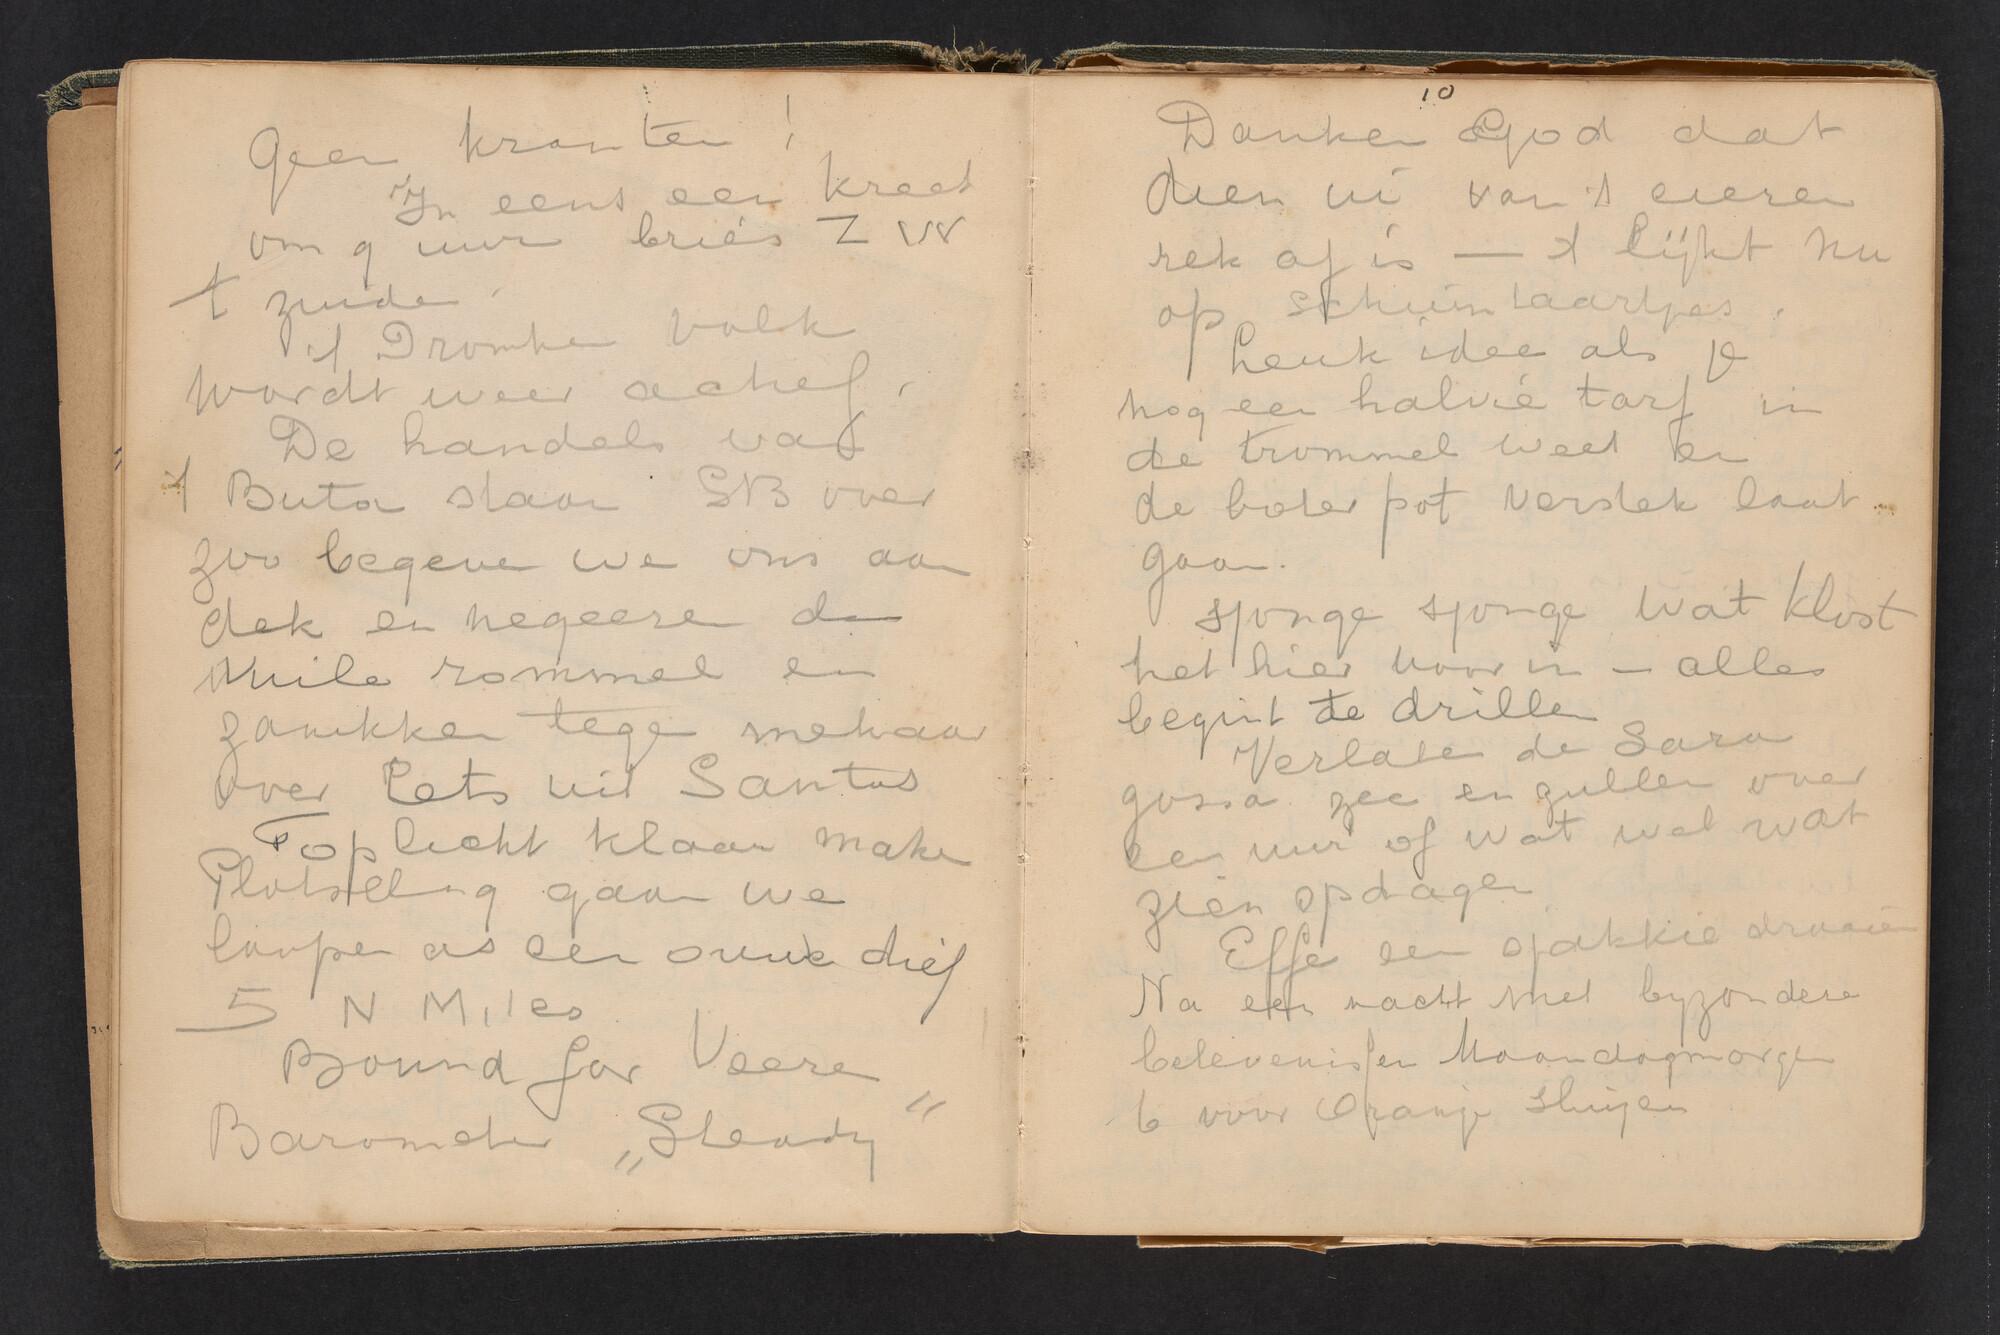 Geen kranten!
In eens een kreet
om 9 uur bries Z W
't zuide.
't Dronken volk
wordt weer actief.
De handels van
't Buta staan SB over
zoo begeve we ons aan
dek en negeere de
vuile rommel en
zanikken tege mekaar
over iets uit Santos
Toplicht klaar make
Plotseling gaan we
loopen as een ouwe dief
5 N Miles
Bound for Veere
Barometer „Steady"
10
Danken God dat
dien ui van 't eieren
rek af is — 't lijkt nu
op schuimtaartjes.
Leuk idee als je
nog een halvie tarf in
de trommel weet en
de boter pot verstek laat
gaan.
sjonge sjonge wat klost
het hier voor in – alles
begint te drillen
Verlaten de Sara
gossa zee en zullen over
een uur of wat wel wat
zien opdagen
Effe een sjakkie draaien
Na een nacht met byzondere
belevenissen Maandagmorgen
6 voor Oranje sluizen